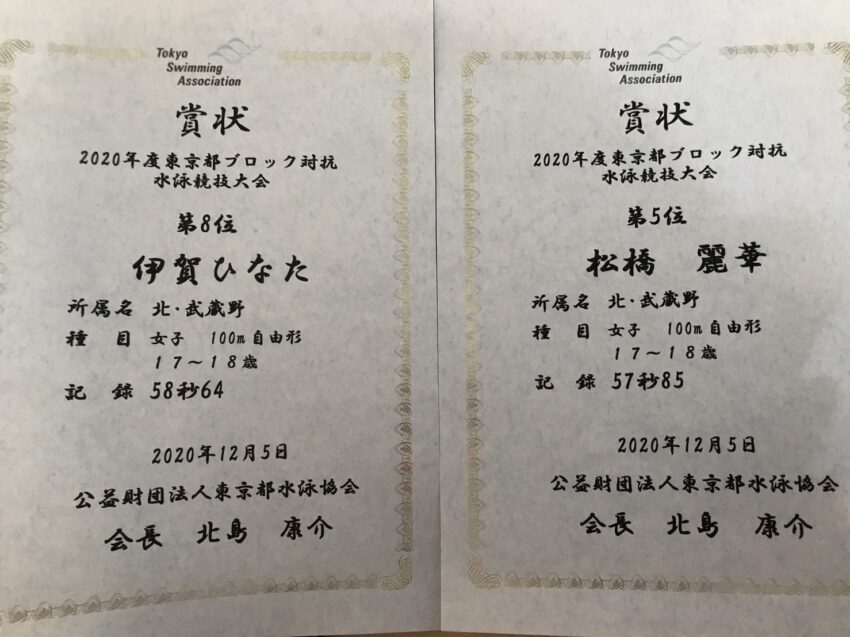 Tokyo
Swimming
Association
賞状
2020年度東京都ブロック対抗
水泳競技大会
第8位
伊賀ひなた
所属名 北・武蔵野
種 目 女子 100m自由形
17~18歳
記 録 58秒64
2020年12月5日
公益財団法人東京都水泳協会
会長 北島 康介
Tokyo
Swimming
Association
賞状
2020年度東京都ブロック対抗
水泳競技大会
第5位
松橋 麗華
所属名 北・武蔵野
種 目 女子 100m自由形
17~18歳
記 録 57秒85
2020年12月5日
公益財団法人東京都水泳協会
会長 北島 康介